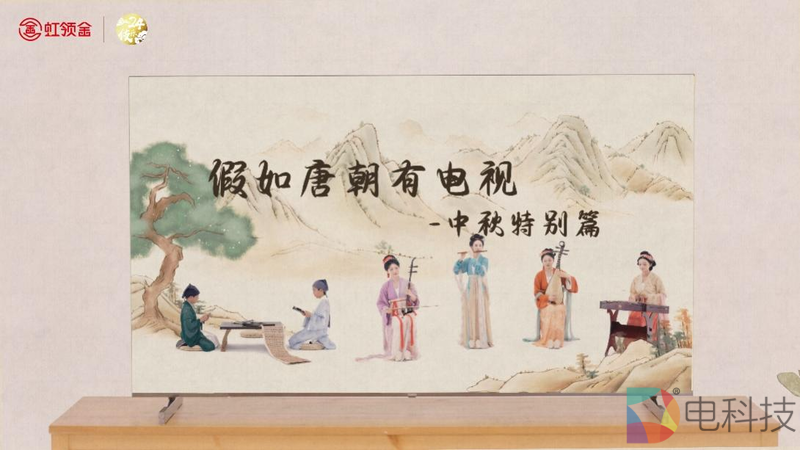 虹领金
假如唐朝有电视
-中秋特别篇
电科技